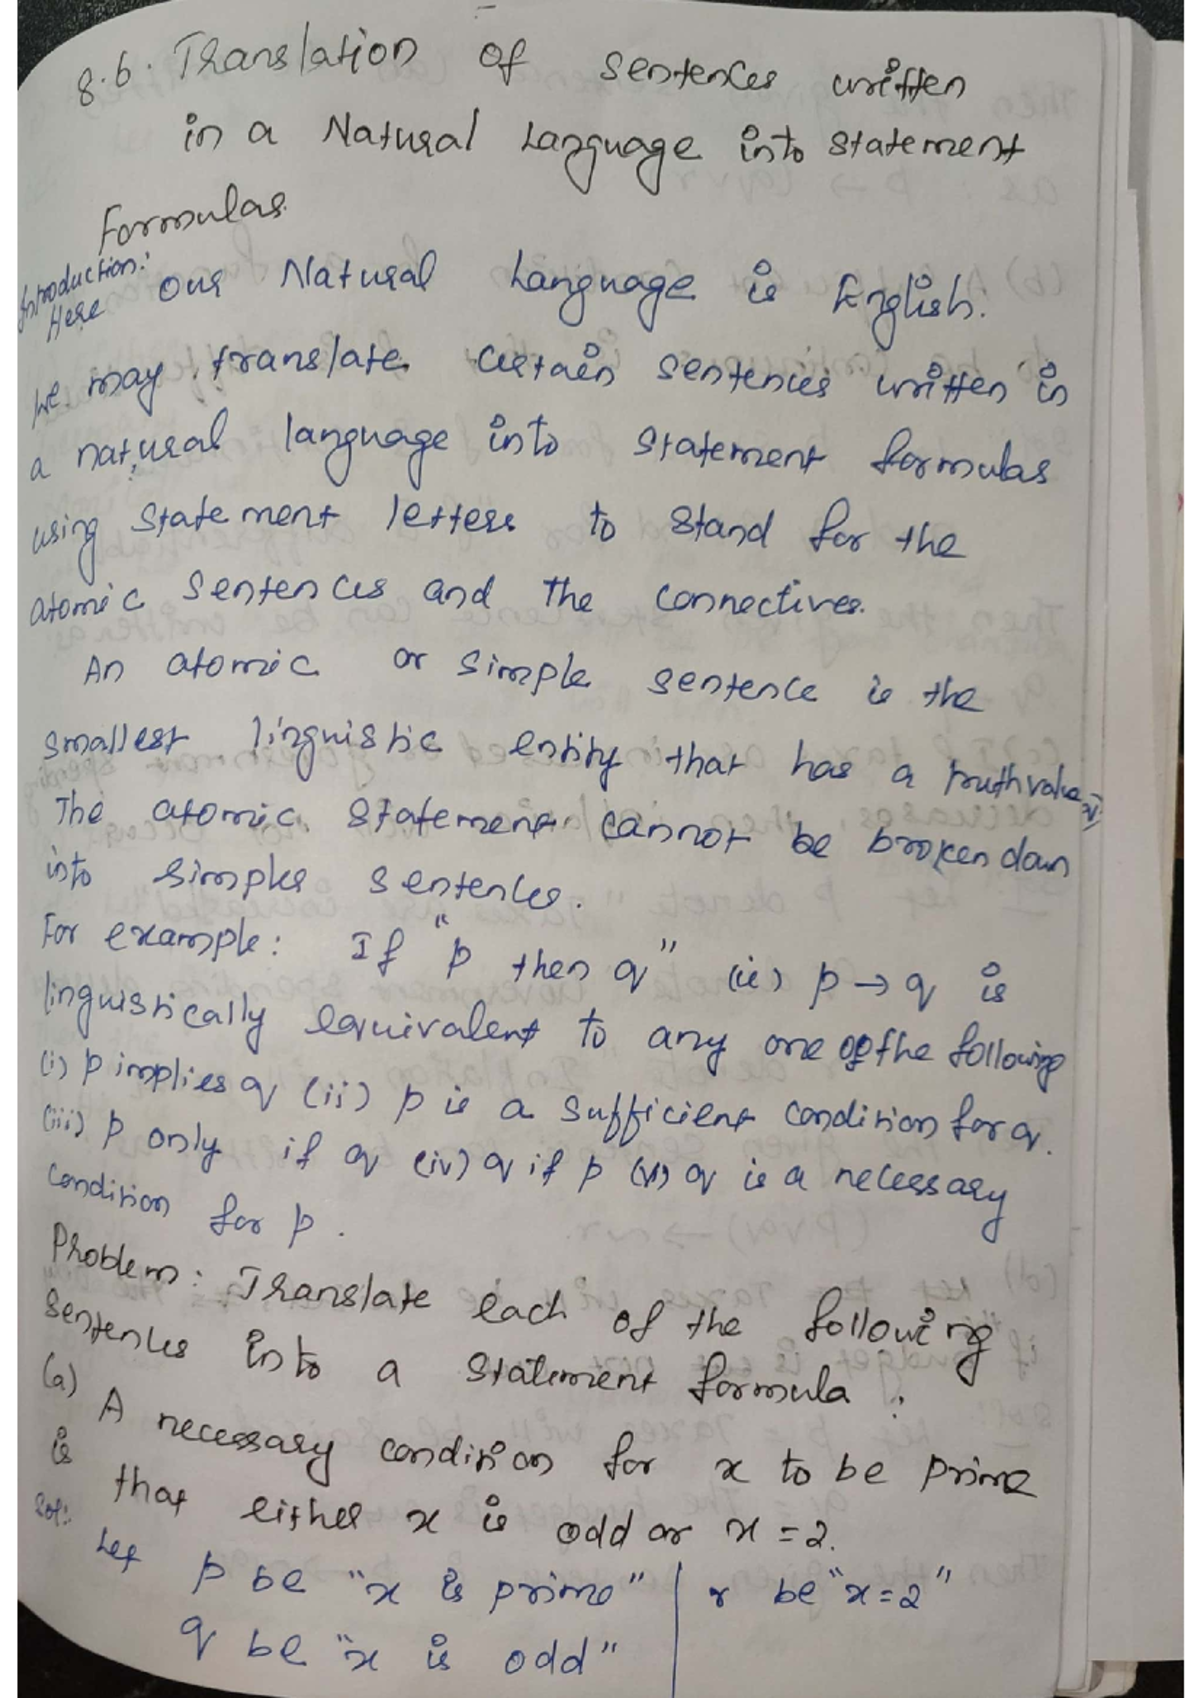 8.6. Translation of sentences written
in a Natural Language into statement
Formulas.
Introduction:
Here our Natural Language is English.
we may translate certain sentences written in
a natural language into statement formulas
using statement letters to stand for the
atomic sentences and the connectives.
An atomic or simple sentence is the
smallest linguistic entity that has a truth value
The atomic statement cannot be broken down
into simpler sentences.
For example: If "p then q" (ie) p → q is
linguistically equivalent to any one of the following
(i) p implies q (ii) p is a sufficient condition for q.
(iii) p only if q (iv) q if p (v) q is a necessary
condition for p.
Problem: Translate each of the following
sentences into a statement formula:
(a) A necessary condition for x to be prime
is that either x is odd or x = 2.
Sol:
Let p be "x is prime" | r be "x=2"
q be "x is odd"